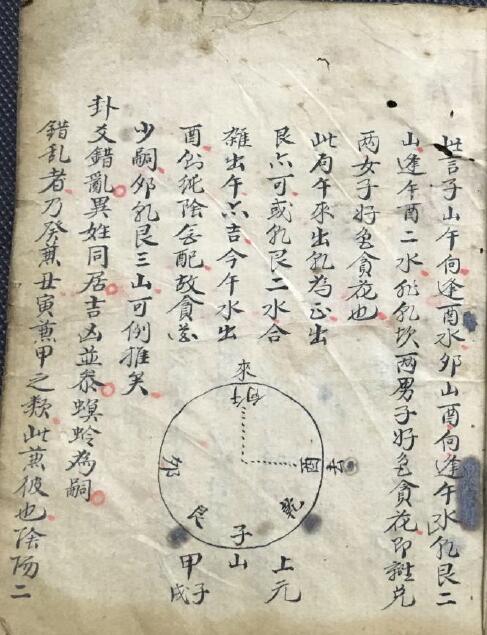 此言子山午向逢酉水卯山酉向逢午水乾艮二
山逢午酉二水非乾坎两男子好色貪花即離兌
两女子好色貪花也
此局午來出乾為正出
艮亦可或乾艮二水合
雜出午亦吉今午水出
酉仍純陰無配故貪花
少嗣卯乾艮三山可例推矣
卦爻錯亂異姓同居吉凶並參螟蛉為嗣
錯乱者乃癸兼丑寅兼甲之類此兼彼也陰陽二
來
向午
酉
去
乾
卯
艮
子山
上元
甲子
戌